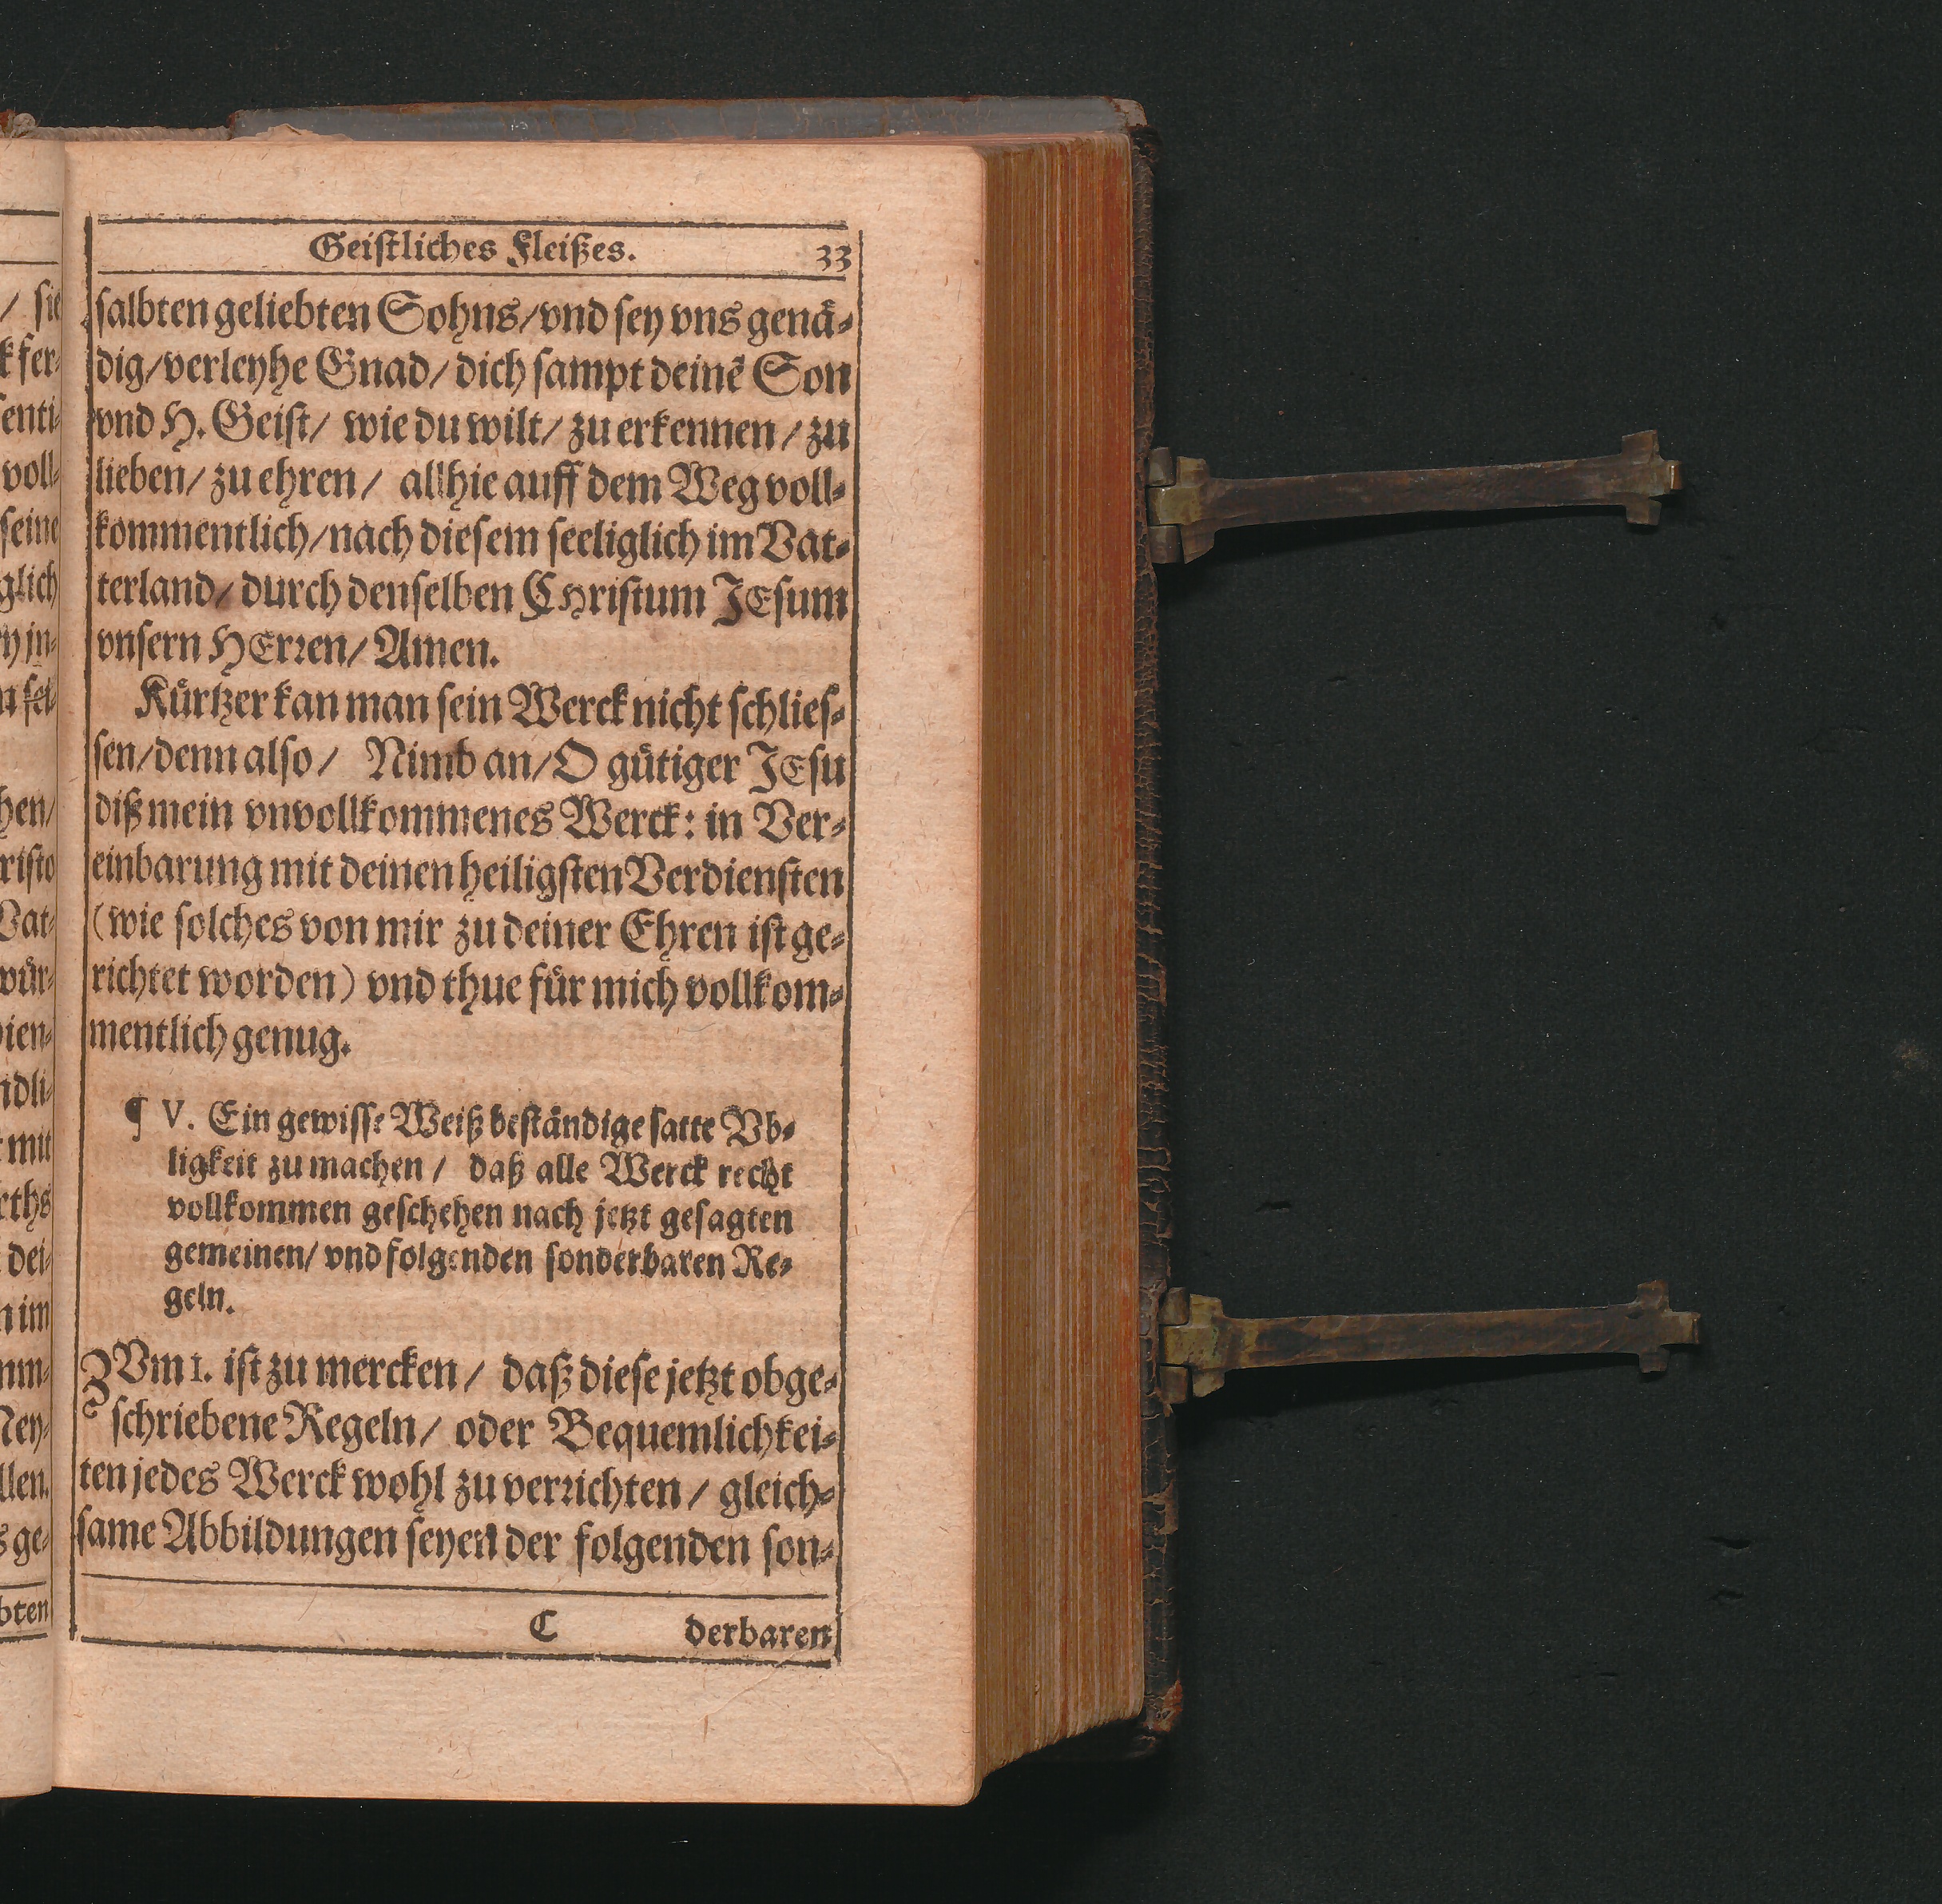 Geiſtliches Fleißes. 33
ſalbten geliebten Sohns/vnd ſey vns genaͤ-
dig/verleyhe Gnad/ dich ſampt deinẽ Son
vnd H. Geiſt/ wie du wilt/ zu erkennen / zu
lieben/ zu ehren / allhie auff dem Weg voll-
kommentlich/nach dieſem ſeeliglich im Vat-
terland/ durch denſelben CHriſtum JEſum
vnſern HErꝛen/ Amen.
Kuͤrtzer kan man ſein Werck nicht ſchlieſ-
ſen/denn alſo / Nimb an/O guͤtiger JEſu
diß mein vnvollkommenes Werck: in Ver-
einbarung mit deinen heiligſten Verdienſten
(wie ſolches von mir zu deiner Ehren iſt ge-
richtet worden) vnd thue fuͤr mich vollkom-
mentlich genug.
¶ V. Ein gewiſſe Weiß beſtaͤndige ſatte Vb-
ligkeit zu machen / daß alle Werck recht
vollkommen geſchehen nach jetzt geſagten
gemeinen/ vnd folgenden ſonderbaren Re-
geln.
ZVm 1. iſt zu mercken / daß dieſe jetzt obge-
ſchriebene Regeln/ oder Bequemlichkei-
ten jedes Werck wohl zu verꝛichten / gleich-
ſame Abbildungen ſeyen der folgenden ſon-
C derbaren